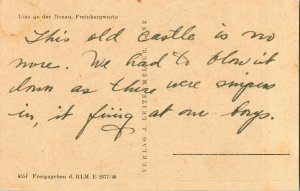 Linz an der Donau, Freinbergwarte
This old castle is no
more. We had to blow it
down as there were snipers
in it, firing at our boys.
VERLAG J. LEITENMÜLLER, LINZ
Freigegeben d. RLM. E